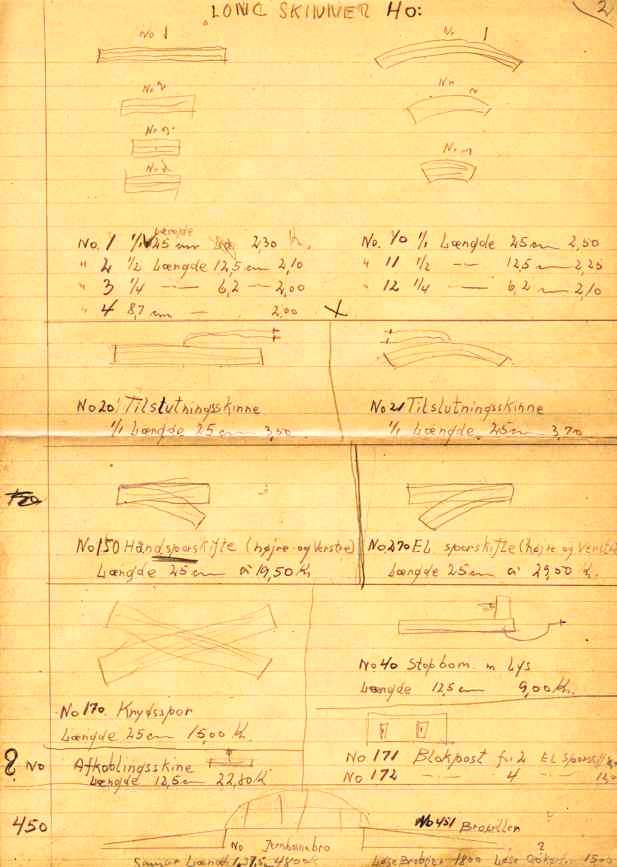 LONG SKINNER HO:
2
No 1
No 1
No 2
No 2
No 3
No 3
No 4
No. 1 1/1 Længde 25 cm 2,30 K.
" 2 1/2 Længde 12,5 cm 2,10
" 3 1/4 — 6,2 — 2,00
" 4 8,7 cm — 2,00 X
No. 10 1/1 Længde 25 cm 2,50
" 11 1/2 — 12,5 cm 2,25
" 12 1/4 — 6,2 cm 2,10
No 20 Tilslutningsskinne
1/1 Længde 25 cm 3,50
No 21 Tilslutningsskinne
1/1 Længde 25 cm 3,70
No 150 Håndsporskifte (højre og Verstre)
Længde 25 cm à 19,50 K
No 270 EL sporskifte (højre og Verstre
Længde 25 cm à 29,50 K.
No 170. Krydsspor
Længde 25 cm 15,00 K.
No 40 Stopbom m Lys
Længde 12,5 cm 9,00 Kr.
8 No Afkoblingsskine
Længde 12,5 cm 22,80 K
No 171 Blokpost for 2 EL Sporskif
No 172 — 4 —
450
No Jernbanebro
No 451 Bropiller
Længde 37,5 48 00 K
Løse Bropiller 18 00 Løse 15 00